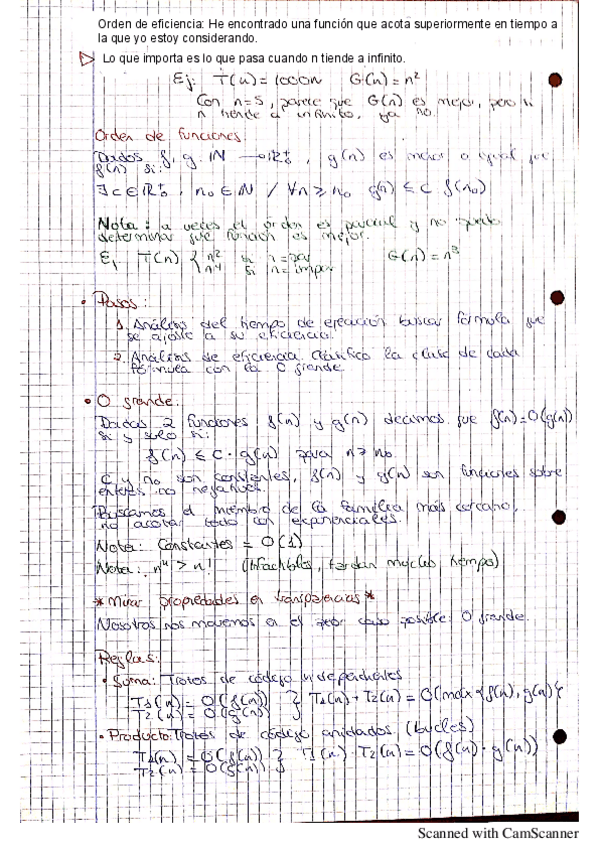 Orden de eficiencia: He encontrado una función que acota superiormente en tiempo a
la que yo estoy considerando.
Lo que importa es lo que pasa cuando n tiende a infinito.
Ej: T(n) = 1000n G(n) = n²
Con n=5, parece que G(n) es mejor, pero si
n tiende a infinito, ya no.
Orden de funciones.
Dados f, g: ℕ → ℝ₀⁺, g(n) es menor o igual que
f(n) si:
∃ c ∈ ℝ₀⁺, n₀ ∈ ℕ / ∀n ≥ n₀ g(n) ≤ c f(n₀)
Nota: a veces el orden es parcial y no puedo
determinar que función es mejor.
Ej T(n) { n² si n = par G(n) = n³
n⁴ si n = impar
• Pasos:
1. Análisis del tiempo de ejecución buscar fórmula que
se ajuste a su eficiencia.
2. Análisis de eficiencia clasifico la clase de cada
fórmula con la O grande
• O grande:
Dadas 2 funciones f(n) y g(n) decimos que f(n) = O(g(n))
si y solo si:
f(n) ≤ c · g(n) para n ≥ n₀
C y n₀ son constantes, f(n) y g(n) son funciones sobre
enteros no negativos.
Buscamos el miembro de la familia más cercano,
no acotar todo con exponenciales.
Nota: Constantes = O(1)
Nota: nⁿ > n! (Infactibles, tardan mucho tiempo)
*Mirar propiedades en transparencias*
Nosotros nos movemos a el peor caso posible: O grande.
Reglas:
• Suma: Trozos de código independientes
T₁(n) = O(f(n)) } T₁(n) + T₂(n) = O(max{f(n), g(n)}
T₂(n) = O(g(n))
• Producto: Trozos de código anidados (bucles)
T₁(n) = O(f(n)) } T₁(n) · T₂(n) = O(f(n) · g(n))
T₂(n) = O(g(n))
Scanned with CamScanner